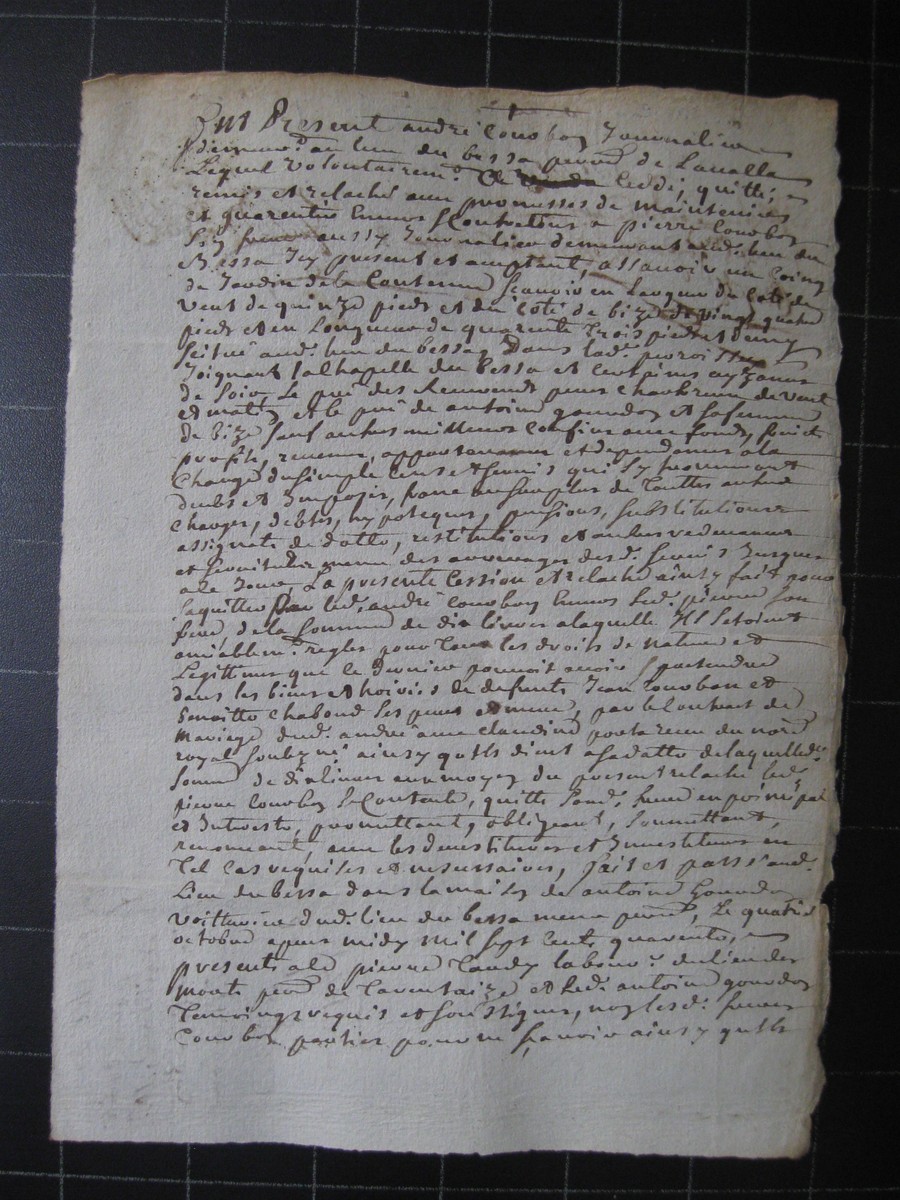 Fut Present andré Courbon Journalier
demeur.t au lieu du bessa parr.e de Lavalla
Lequel volontairem.t cedde, quitté,
remis et relaché aux promesses de maintenir
et guarentir Envers Contre tous a pierre Courbon
Son frere aussy Journalier demeurant aud. lieu du
Bessa Icy present et acceptant, assavoir un Coing
de Jardin de la Contenue scavoir en Largeur du Coté de
vent de quinze pieds et du Coté de bize de vingt quatre
pieds et en Longueur de quarente trois pieds et demy
scitué aud. lieu du bessa, dans lad. parroisse
Joignant la Chapelle du bessa et Certains
de Soir, Le pré des pierre de vent
et matin et le pré de antoine gourdon et sa femme
de bize sauf autres meilleurs confins avec fonds, fruits
profits, revenus, appartenances et dependances a la
Charge du simple Cens et servis qui s'y trouveront
deubs et Imposés, franc au surplus de Touttes autres
charges, debtes, hypoteques, pensions, substitutions
assignats de dotte, restitutions et autres redevances
et des arrerages desd. servis Jusques
a ce Jour La presente Cession et relaché ainsy fait pour
Sequitter par led. andré Courbon Envers led. pierre son
frere, de la somme de dix livres a laquelle Ils se sont
amiablem.t reglés pour Tous les droits de nature et
Legittimes que le dernier pouvoit avoir et pretendre
dans les biens et hoiries de defunts Jean Courbon et
Benoitte Chaboud Ses pere et mere, par le Contract de
Mariage dud. andré avec Claudine recu du no.re
royal soubzne. ainsy qu'Ils disent a sa datte de laquelle d.
somme de dix livres au moyen du present relaché led.
pierre Courbon Se Contente, quitte sond. frere en principal
et Interests, promettant, obligeant, soumettant,
renonceant, avec les devestitures et Investitures en
Tel Cas requises et necessaires, fait et passé aud.
Lieu du bessa dans la maison de antoine Gourdon
voitturier dud. lieu du bessa meme parr.e, Le quatre
octobre apres midy mil sept Cents quarente,
presents a ce pierre Tardy labour.r du lieu des
monts parr.e de Tarentaize et led. antoine gourdon
Temoings requis et soussignes, non lesd. freres
Courbon parties pour ne scavoir ainsy qu'Ils